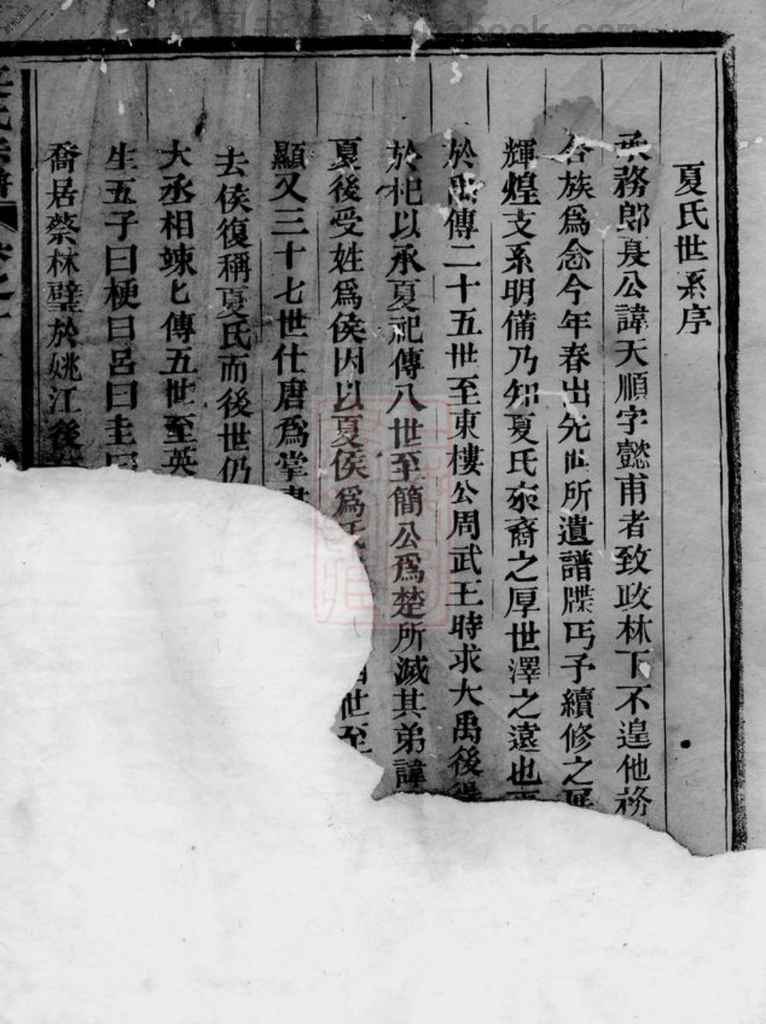 夏氏世系序
承務郎夏公諱天順字懿甫者致政林下不遑他務
合族爲念今年春出先世所遺譜牒丐予續修之展
輝煌支系明備乃知夏氏來裔之厚世澤之遠也
於禹傳二十五世至東樓公周武王時求大禹後得
於杞以承夏祀傳八世至簡公爲楚所滅其弟諱
夏後受姓爲侯因以夏侯爲氏 世至
顯又三十七世仕唐爲掌書
去侯復稱夏氏而後世仍
大丞相竦七傳五世至英
生五子曰梗曰呂曰圭曰
喬居蔡林壁於姚江後
氏宗譜